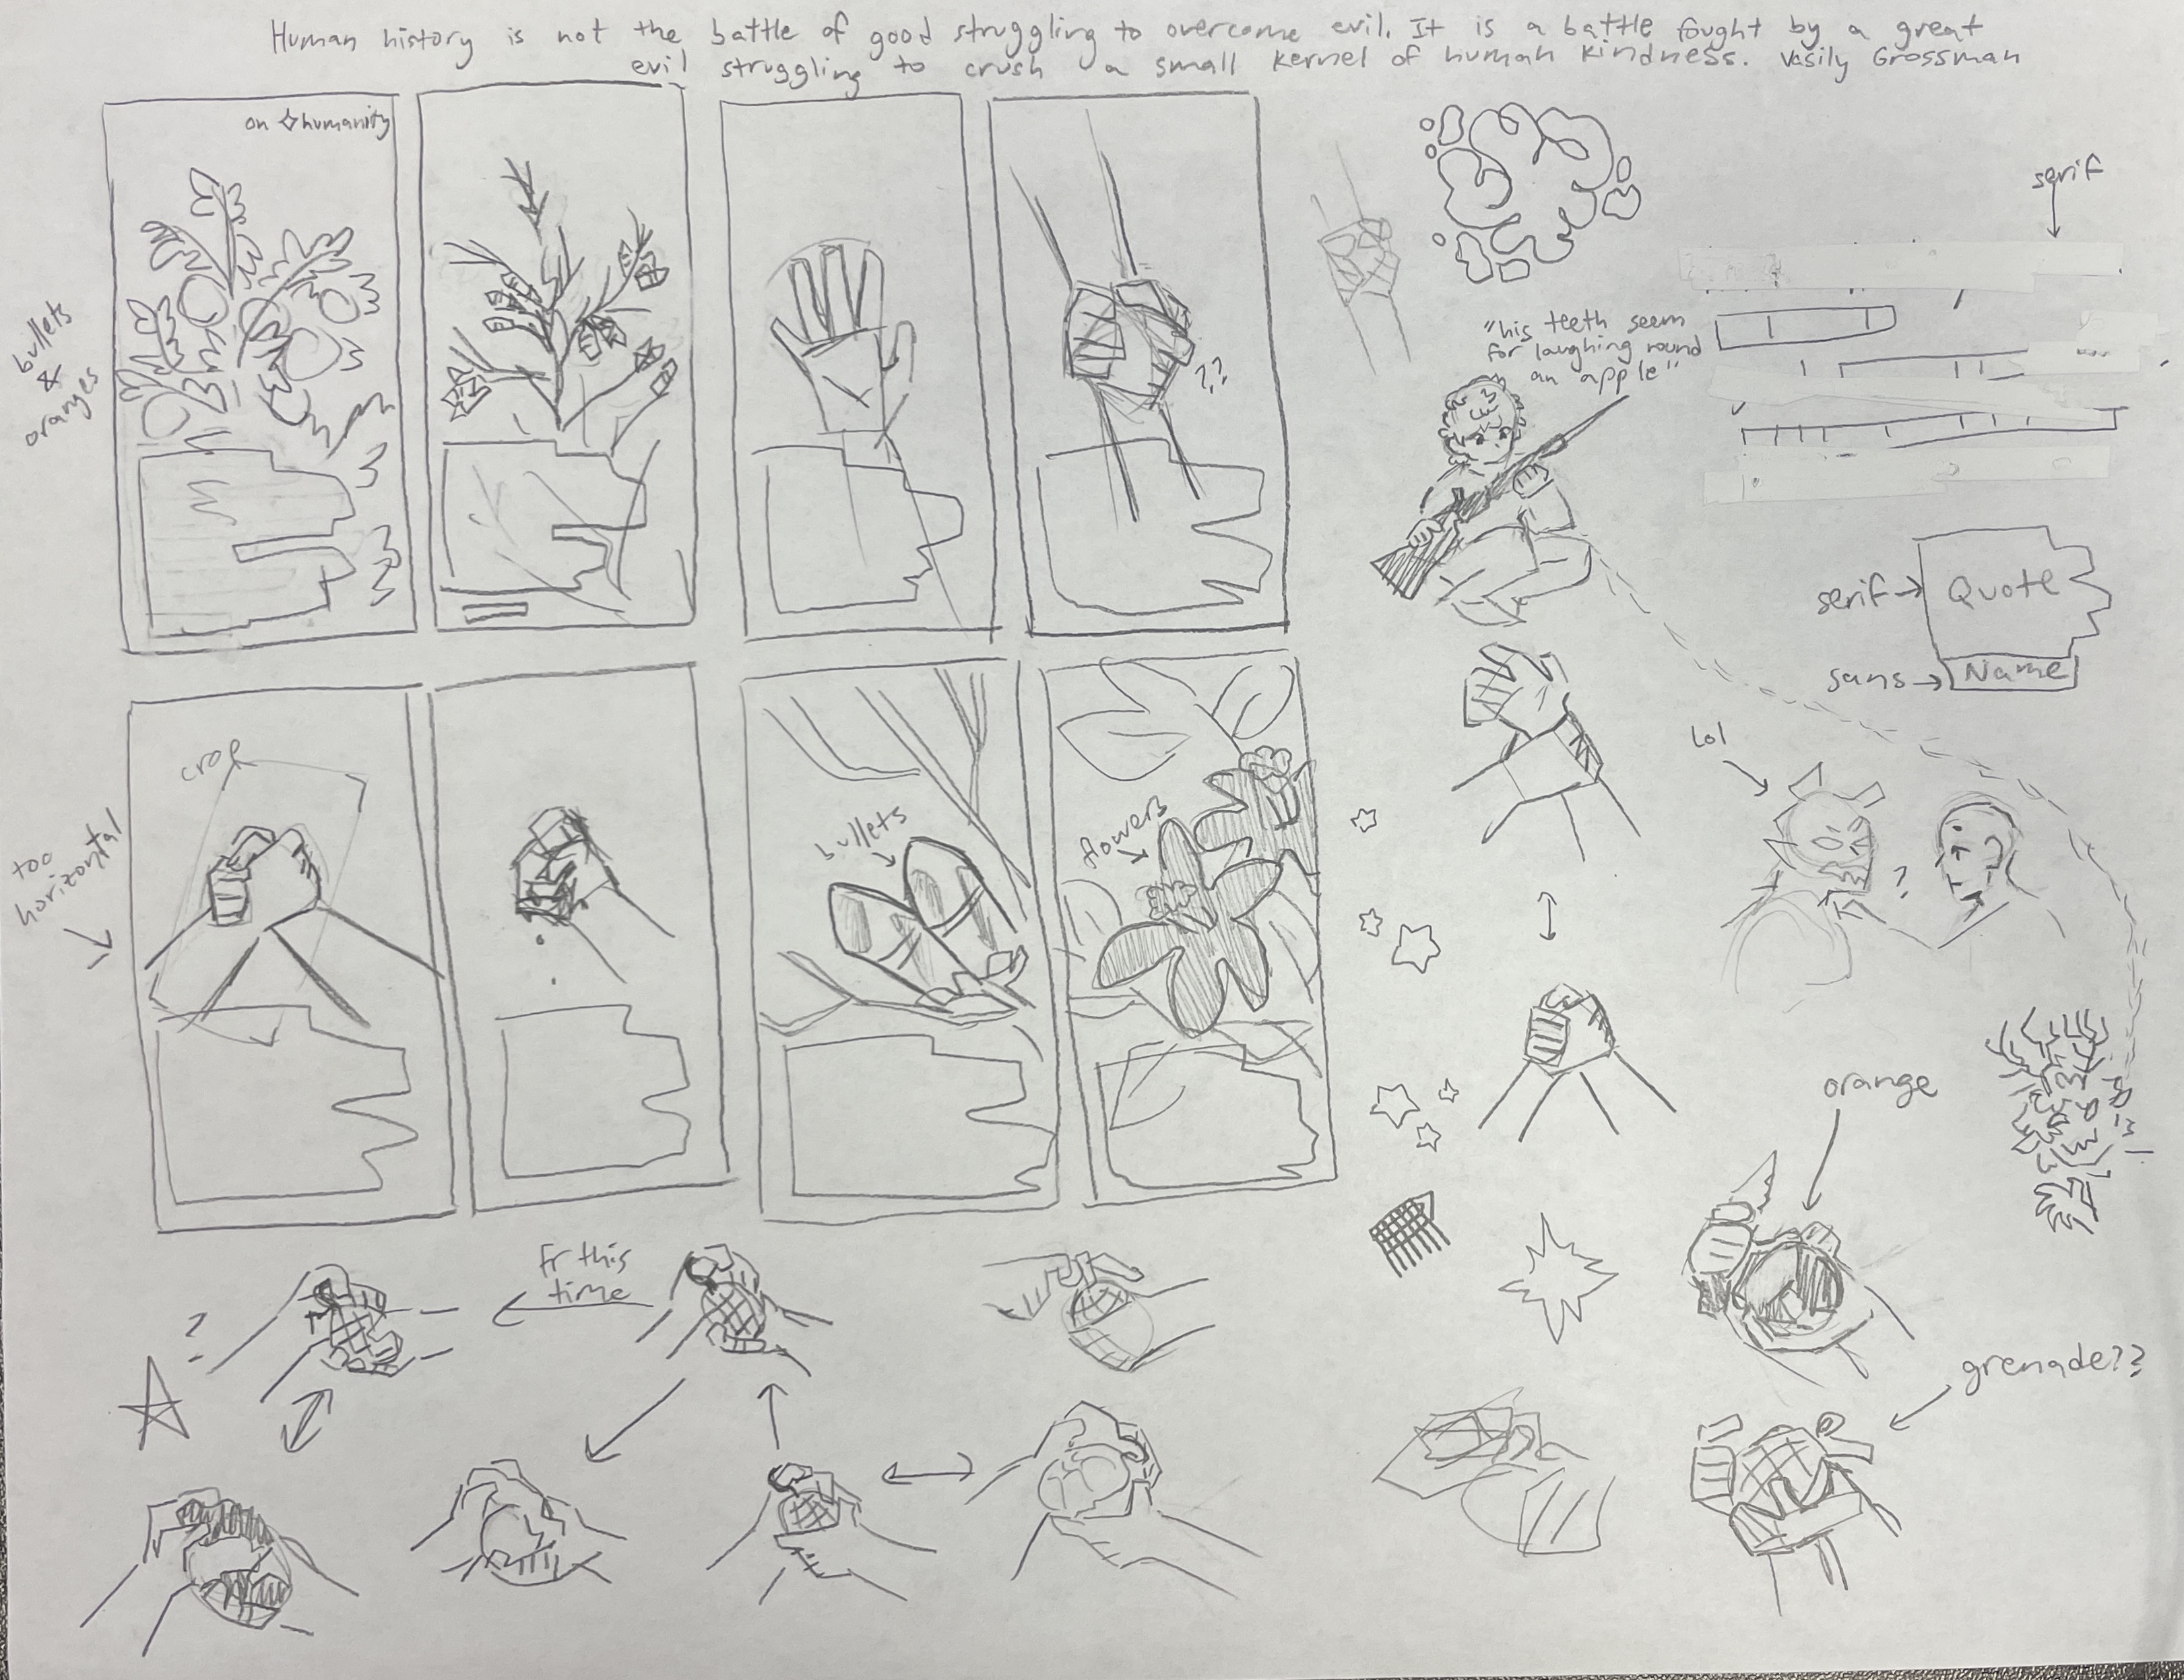 Human history is not the battle of good struggling to overcome evil. It is a battle fought by a great
evil struggling to crush a small kernel of human kindness. Vasily Grossman
on humanity
bullets
&
oranges
??
"his teeth seem
for laughing round
an apple"
serif
serif
Quote
sans
Name
lol
?
too
horizontal
crop
bullets
flowers
orange
grenade??
fr this
time
?